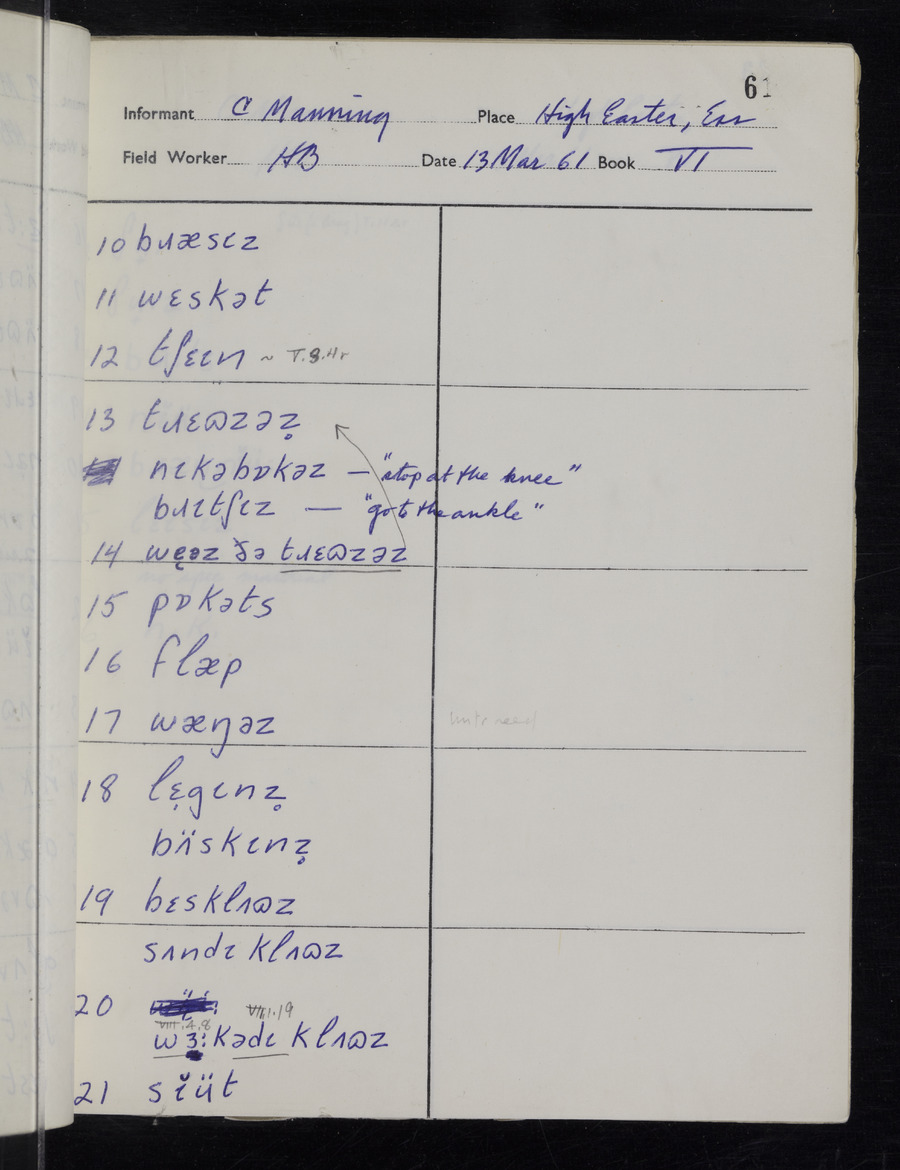 61
Informant C Manning Place High Easter, Ess
Field Worker HB Date 13 Mar 61 Book VI
10 bɹæsɩz
11 wɛskət
12 tʃɛɩn ~ V.3.4r
13 tɹɛɷzəz̥
nɩkəbɒkəz — "stop at the knee"
bɹɩtʃɩz — "go to the ankle"
14 wɛ̣əz ðə tɹɛɷzəz
15 pɒkəts
16 flæp
17 wæŋəz
18 lɛ̣gɩnz̥
bʌ̈skɩnz̥
19 bɛsklʌɷz
sʌndɩ klʌɷz
20 VIII.1.19
VIII.4.8
wɜ:kədɩ klʌɷz
21 sɩ̆üt